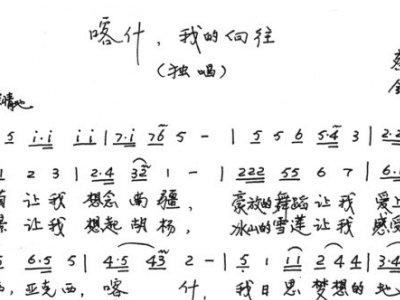 喀什，我的向往
（独唱）
情地
5 i·i i i | 7·i 7 6 5 - | 5 5 6 5·4 3 | 2·2
1 2 3 | 2·4 3 2 1 - | 2 2 2 5 5 6 7 | 6·
让我 想念南疆， 豪放的舞蹈让我 爱上
景 让我 想起胡杨， 冰山的雪莲让我 感受
5 6·5 5 | 4·5 4 3 2 - | 5 1 1 1 2 4 4 | 3·4
，亚克西，喀 什， 我日思梦想的地